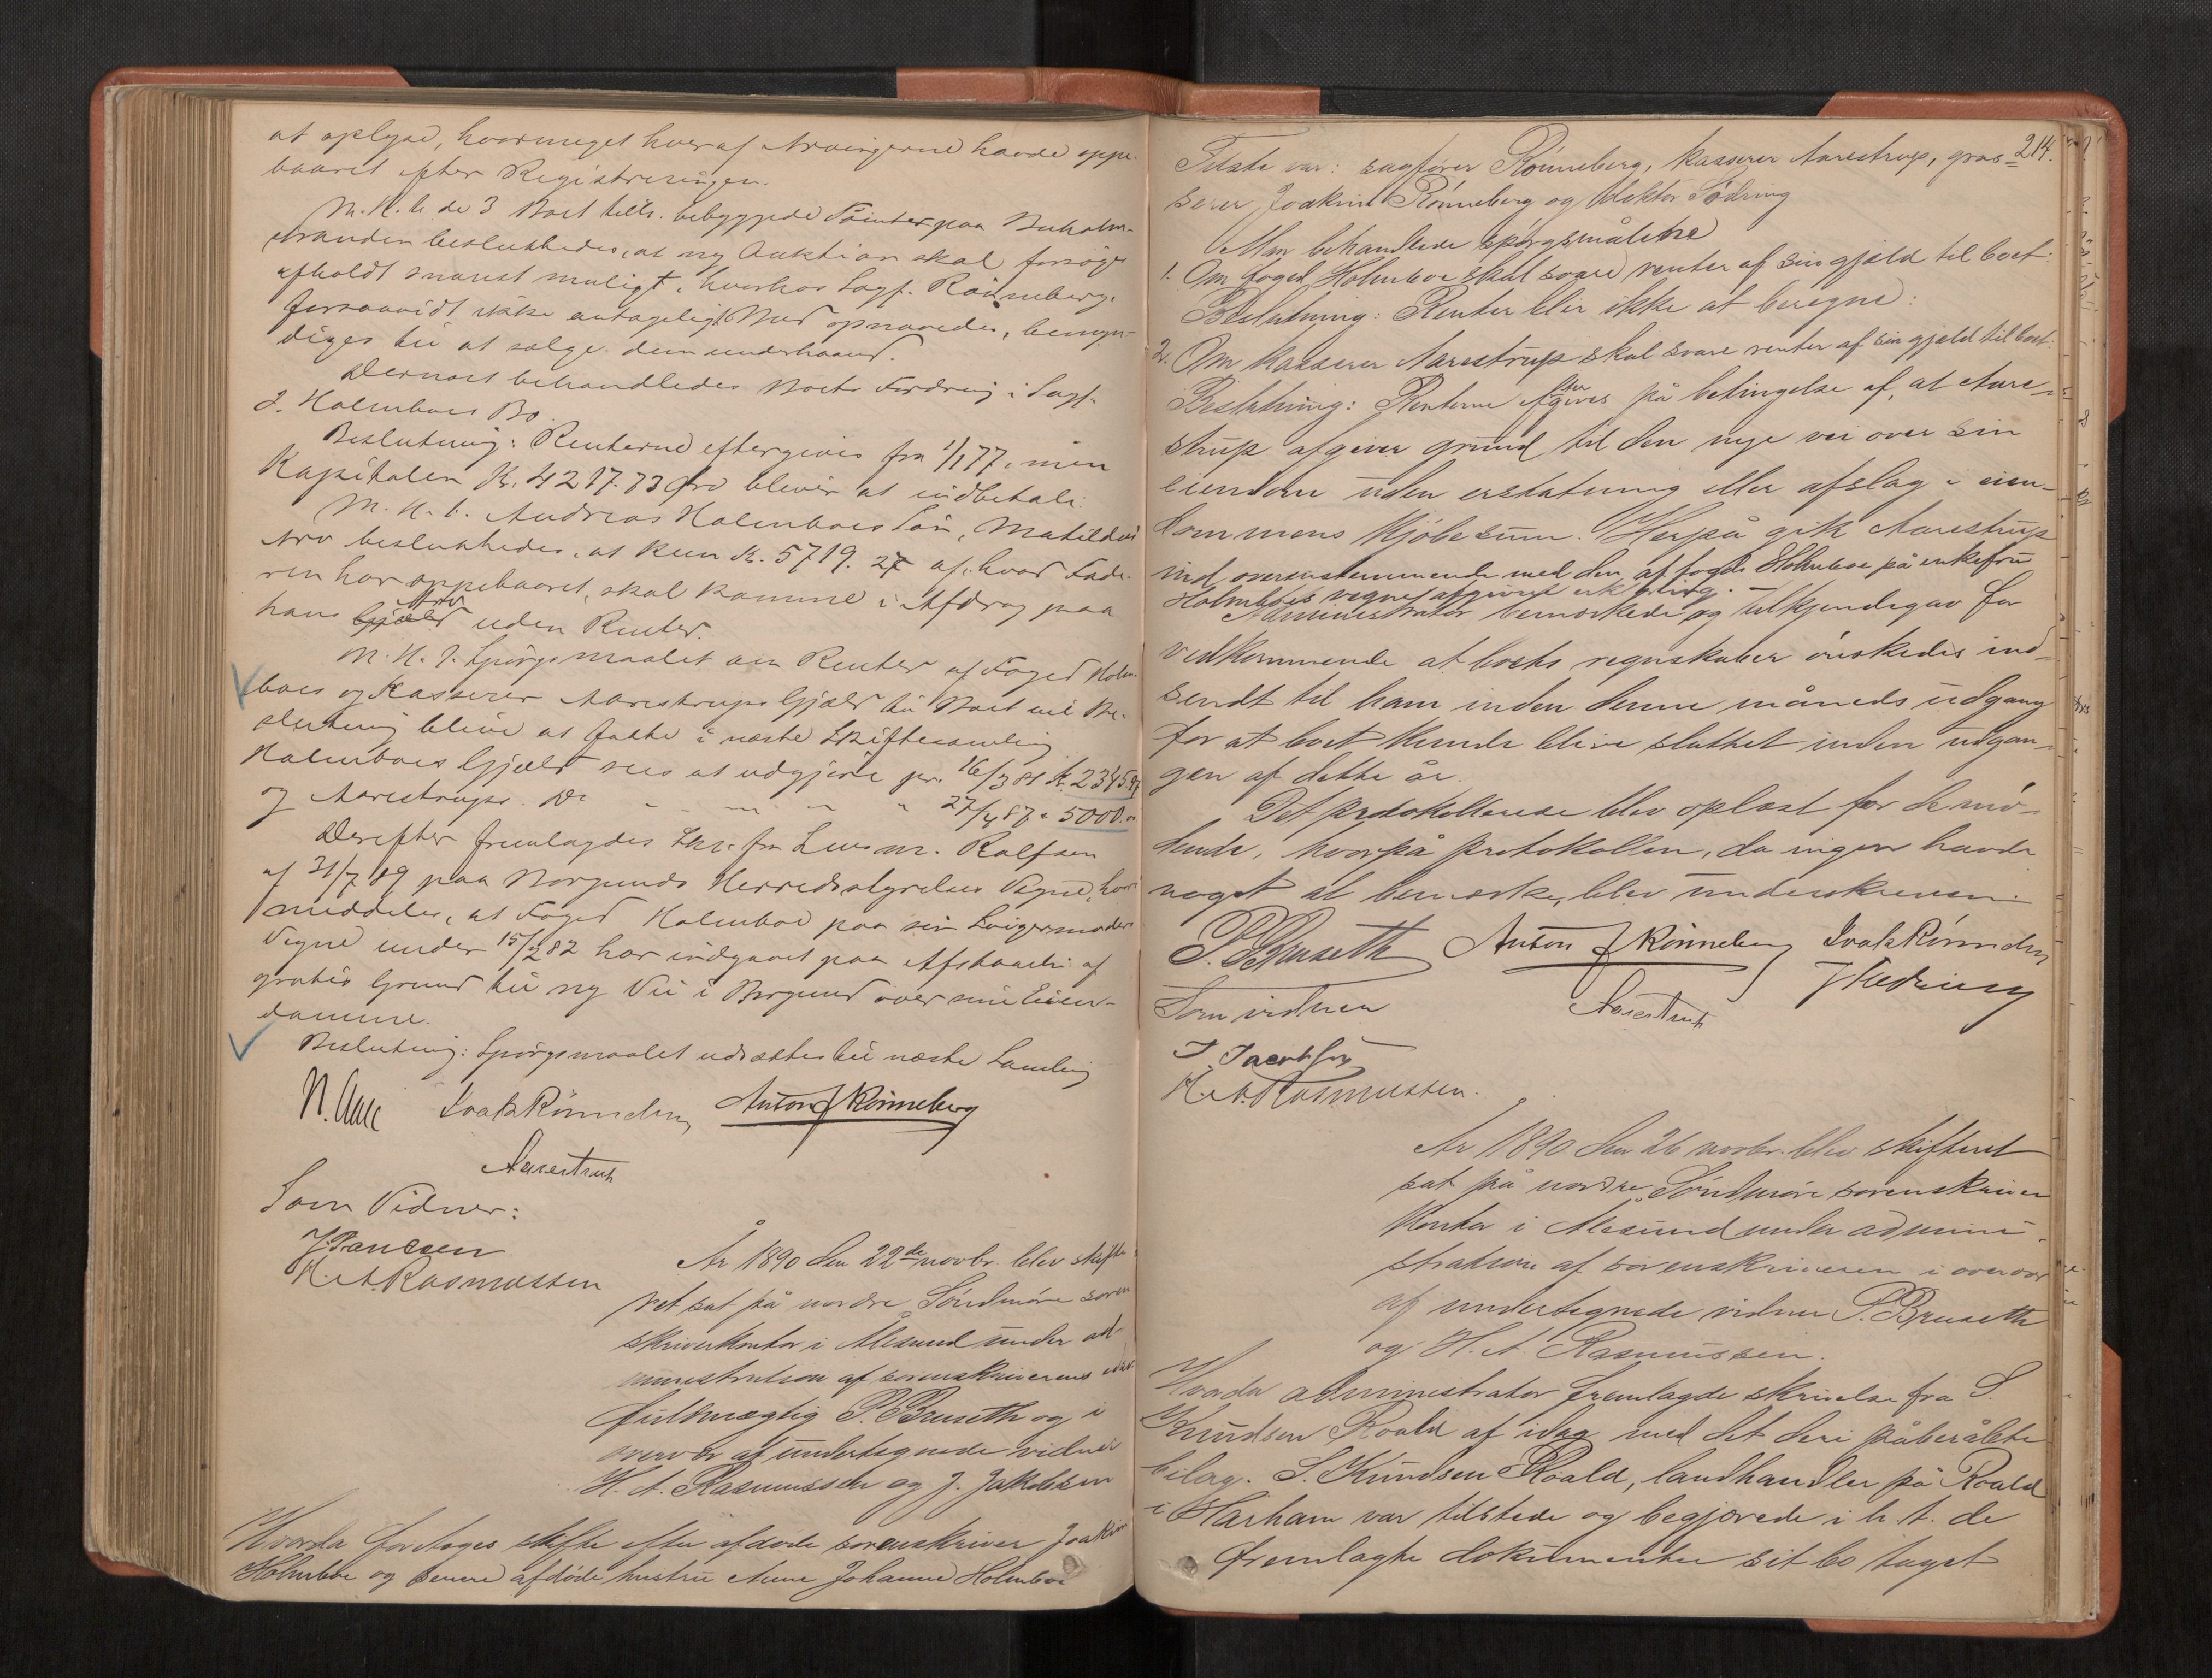 at oplyse, hvormeget hver af Arvingerne havde oppe-
baaret efter Registreringen.
M. H. t. de 3 Boet tilh. bebyggede Tomter paa Buholm-
stranden besluttedes, at ny Auktion skal forsøges
afholdt snarest muligt, hvorhos Sagf. Rønneberg,
forsaavidt ikke antageligt Bud opnaaedes, bemyn-
diges til at sælge dem underhaand.
Dernæst behandledes Boets Fordring i Sagf.
J. Holmboes Bo.
Beslutning: Renterne eftergives fra 1/1 77, men
Kapitalen Kr. 4217.73 Øre bliver at indbetale.
M. H. t. Andreas Holmboes Søn, Matildes
Arv besluttedes, at kun Kr. 5719.27 af, hvad Fade-
ren har oppebaaret, skal komme i Afdrag paa
hans Arv uden Renter.
M. H. t. Spørgsmaalet om Renter af Foged Holm-
boes og Kasserer Aarestrups Gjæld til Boet vil Be-
slutning blive at fatte i næste Skiftesamling
Holmboes Gjæld sees at udgjøre pr. 16/3 81 Kr. 2345.
og Aarestrups Do " " " 27/4 87 " 5000.
Derefter fremlagdes Skr. fra Lensm. Rolfsen
af 31/7 89 paa Borgunds Herredsstyrelses Vegne, hvori
meddeles, at Foged Holmboe paa sin Svigermoders
Vegne under 15/2 82 har indgaaet paa Afstaaelse af
gratis Grund til ny Vei i Borgund over sine Eien-
domme.
Beslutning: Spørgsmaalet udsættes til næste Samling
N. Aase Joak Rønneberg Anton J Rønneberg
Aarestrup
Som Vidner:
J. Paulsen
H. A. Rasmussen
År 1890 den 22de novbr. blev skifte-
ret sat på nordre Søndmøre soren-
skriverkontor i Ålesund under ad-
ministration af sorenskriverens
fuldmægtig P. Bruseth og i
overvær af undertegnede vidner
H. A. Rasmussen og J. Jakobsen
Hvorda foretoges skifte efter afdøde sorenskriver Joakim
Holmboe og senere afdøde hustru Anne Johanne Holmboe
214.
Tilstede var: sagfører Rønneberg, kasserer Aarestrup, gros-
serer Joakim Rønneberg og doktor Sødring
Man behandlede spørgsmålene
1. Om foged Holmboe skal svare renter af sin gjæld til boet:
Beslutning: Renter blir ikke at beregne:
2. Om kasserer Aarestrup skal svare renter af sin gjæld til boet:
Beslutning: Renterne eftergives på betingelse af, at Aare-
strup afgiver grund til den nye vei over sin
eiendom uden erstatning eller afslag i eien-
dommens kjøbesum. Herpå gik Aarestrup
ind overensstemmende med den af foged Holmboe på enkefru
Holmboes vegne afgivne erklæring.
Administrator bemærkede og tilkjendegav for
vedkommende at boets regnskaber ønskedes ind-
sendt til ham inden denne måneds udgang
for at boet kunde blive sluttet inden udgan-
gen af dette år.
Det protokollerede blev oplæst for de mø-
dende, hvorpå protokollen, da ingen havde
noget at bemærke, blev underskreven.
P. Bruseth Anton J Rønneberg Joak Rønneberg
Som vidner Aarestrup J Sødring
J. Jacobsen
H. A. Rasmussen.
År 1890 den 26 novbr. blev skifteret
sat på nordre Søndmøre sorenskriver
kontor i Ålesund under admini-
stration af sorenskriveren i overvær
af undertegnede vidner P. Bruseth
og H. A. Rasmussen.
Hvorda administrator fremlagde skrivelse fra S.
Knudsen Roald af idag med det deri påberåbte
bilag. S. Knudsen Roald, landhandler på Roald
i Harham var tilstede og begjærede i h. t. de
fremlagte dokumenter sit bo taget